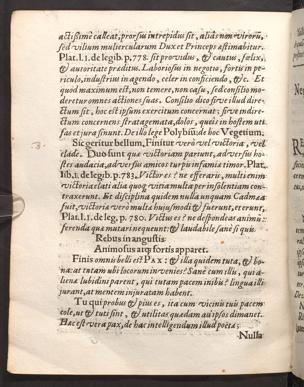 actissimè calleat, prorsus intrepidus sit, aliàs non virorũ,
sed vilium muliercularum Dux et Princeps æstimabitur.
Plat. l. 1. de legib. p. 778. sit providus, & cautus, fœlix,
& autoritate præditus. Laboriosus in negotio, fortis in pe-
riculo, industrius in agendo, celer in conficiendo, &c. Et
quòd maximum est, non temere, non casu, sed consilio mo-
deretur omnes actiones suas. Consilio dico sive illud dire-
ctum sit, hoc est ipsum exercitum concernat; sive indire-
ctum concernens stratagemata, dolos, quôsvis in hostem usi-
tas et jura sinunt. De illo lege Polybiũ: de hoc Vegetium.
Sic geritur bellum, Finitur verò vel victoria, vel
clade. Duo sunt quæ victoriam pariunt, adversùs ho-
stes audacia, ad versùs amicos turpis infamiæ timor. Plat.
lib. 1. de legib. p. 783. Victor es? ne efferaris, multi enim
victoria elati alia quog victi multa per insolentiam con-
traxerunt. Et disciplina quidem nulla unquam Cadmæa
fuit, victoria verò multæ hujusmodi & fuerunt, et erunt,
Plat. l. 1. de leg. p. 780. Victus es? ne despondeas animũ:
ferenda quæ mutari nequeunt: & laudabile sanè si quis
Rebus in angustis
Animosus atq fortis apparet.
Finis omnis belli est PAX: & illa quidem tuta, & bo-
na: at tutam ubi locorum invenies? Sanè cum illis, qui a-
liena lubidini parent, qui tutam pacem inibis? lingua illi
jurant, at mentem injuratam habent.
Tu qui probus & pius es, ita cum vicinis tuis pacem
cole, ut & tuti sint, & utilitas quædam ad ipsos dimanet.
Hæc est vera pax, de hac intelligendum illud poëtæ:
Nulla